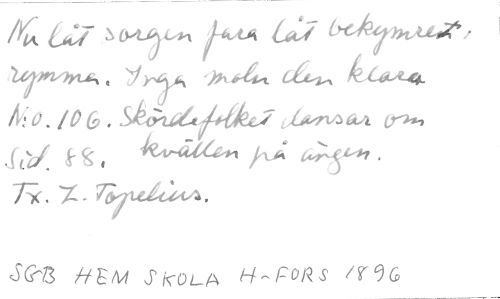 Nu låt sorgen fara låt bekymret
rymma. Inga moln den klara
N:o. 106. Skördefolket dansar om
Sid. 88. kvällen på ängen.
Tx. Z. Topelius.
SGB HEM SKOLA H-FORS 1896